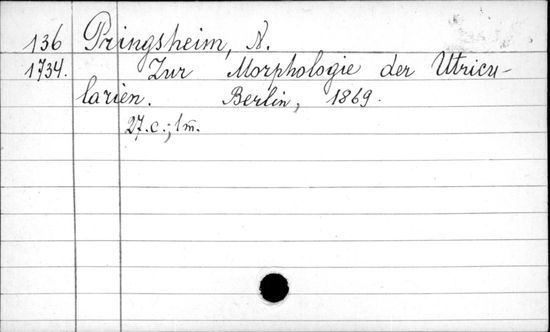 136 Pringsheim, N.
1734. Zur Morphologie der Utricu-
larien. Berlin, 1869.
27.c.; 1 m.